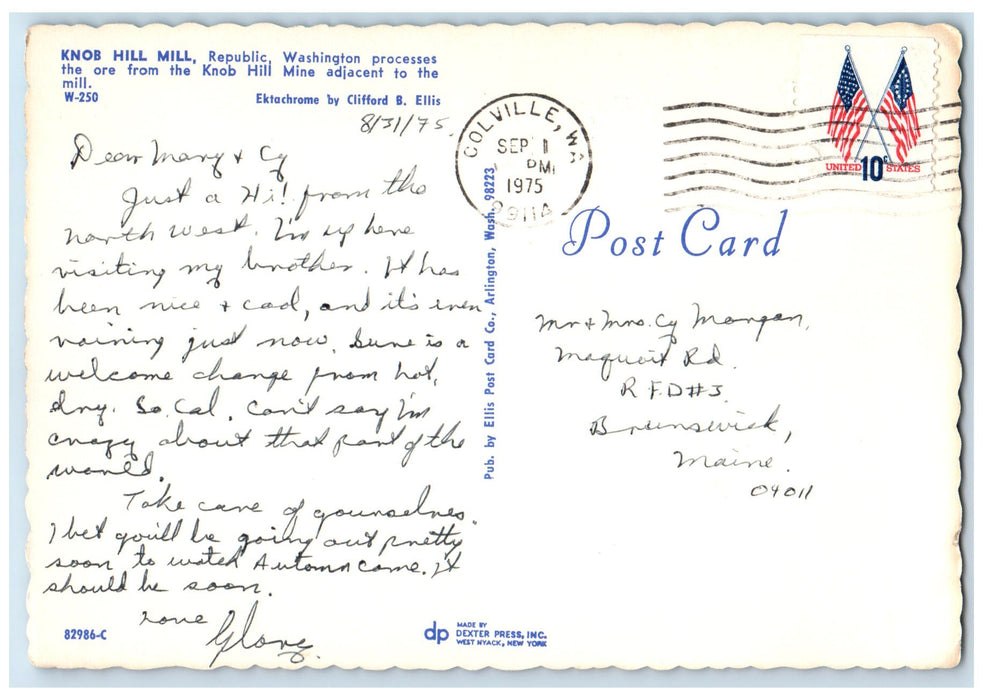 KNOB HILL MILL, Republic, Washington processes
the ore from the Knob Hill Mine adjacent to the
mill.
W-250 Ektachrome by Clifford B. Ellis
8/31/75.
Dear Mary + Cy
Just a Hi! from the
north west. I'm up here
visiting my brother. It has
been nice + cool, and it's even
raining just now. Sure is a
welcome change from hot,
dry. So. Cal. Can't say I'm
crazy about that part of the
world.
Take care of yourselves.
I bet you'll be going out pretty
soon to watch Autumn come. It
should be soon.
Love
82986-C
Pub. by Ellis Post Card Co., Arlington, Wash. 98223
dp MADE BY
DEXTER PRESS, INC.
WEST NYACK, NEW YORK
COLVILLE, WA
SEP 1
PM
1975
UNITED 10c STATES
Post Card
Mr + Mrs. Cy Morgan,
Maquoit Rd.
R.F.D #3
Brunswick,
Maine.
04011